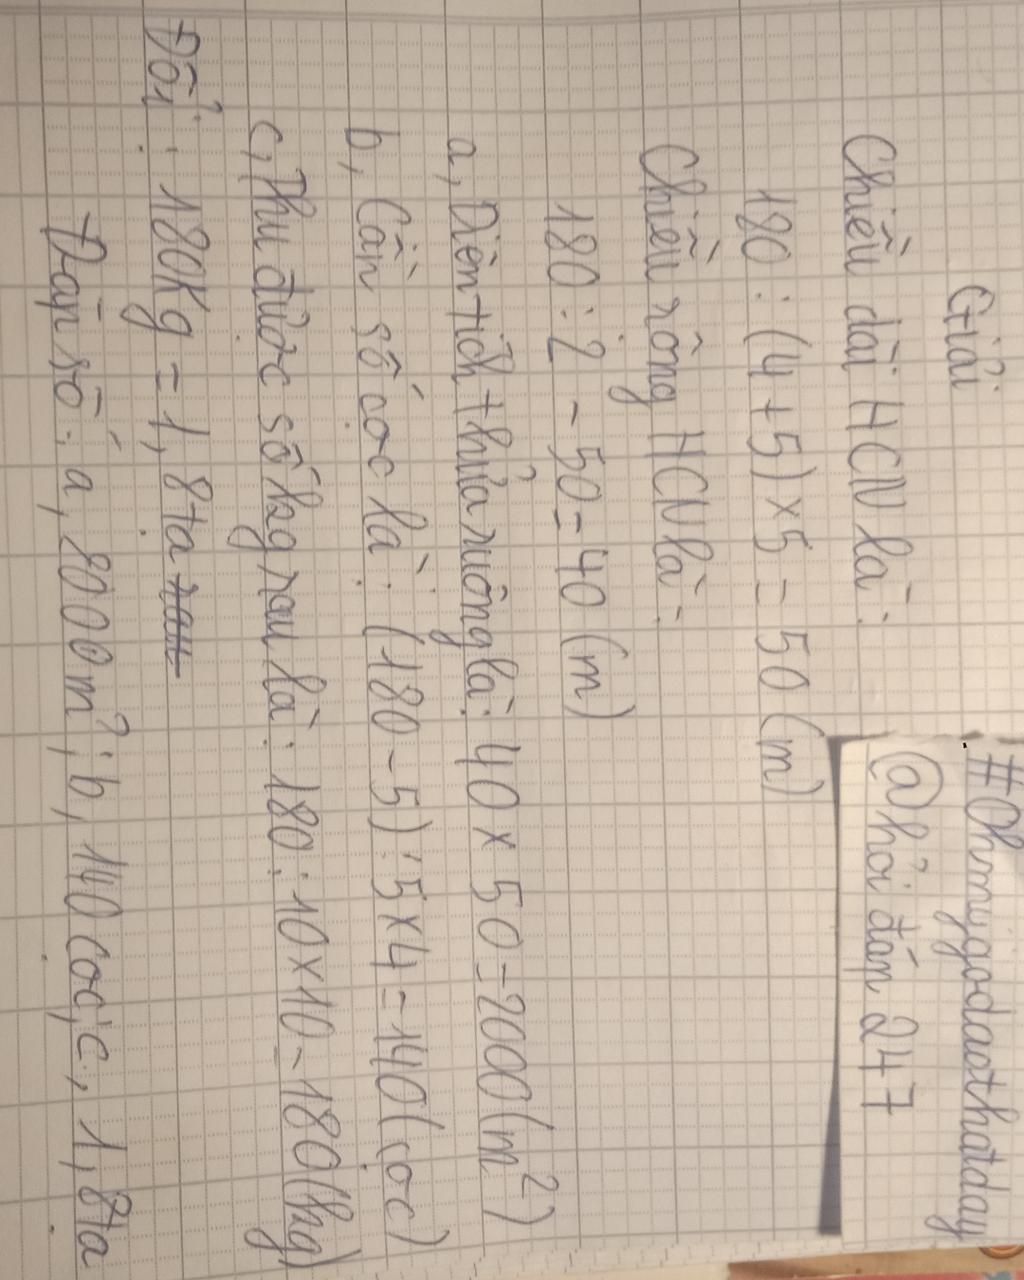 Giải
#Ohmygodaothatday
@hỏi đáp 247
Chiều dài HCN là:
180 : (4+5) × 5 = 50 (m)
Chiều rộng HCN là:
180 : 2 - 50 = 40 (m)
a, Diện tích thửa ruộng là: 40 × 50 = 2000 (m²)
b, Cần số cọc là: (180 - 5) : 5 × 4 = 140 (cọc)
c, Thu được số kg rau là: 180 : 10 × 10 = 180 (kg)
Đổi: 180kg = 1,8 tạ
Đáp số: a, 2000m²; b, 140 cọc; c, 1,8 tạ